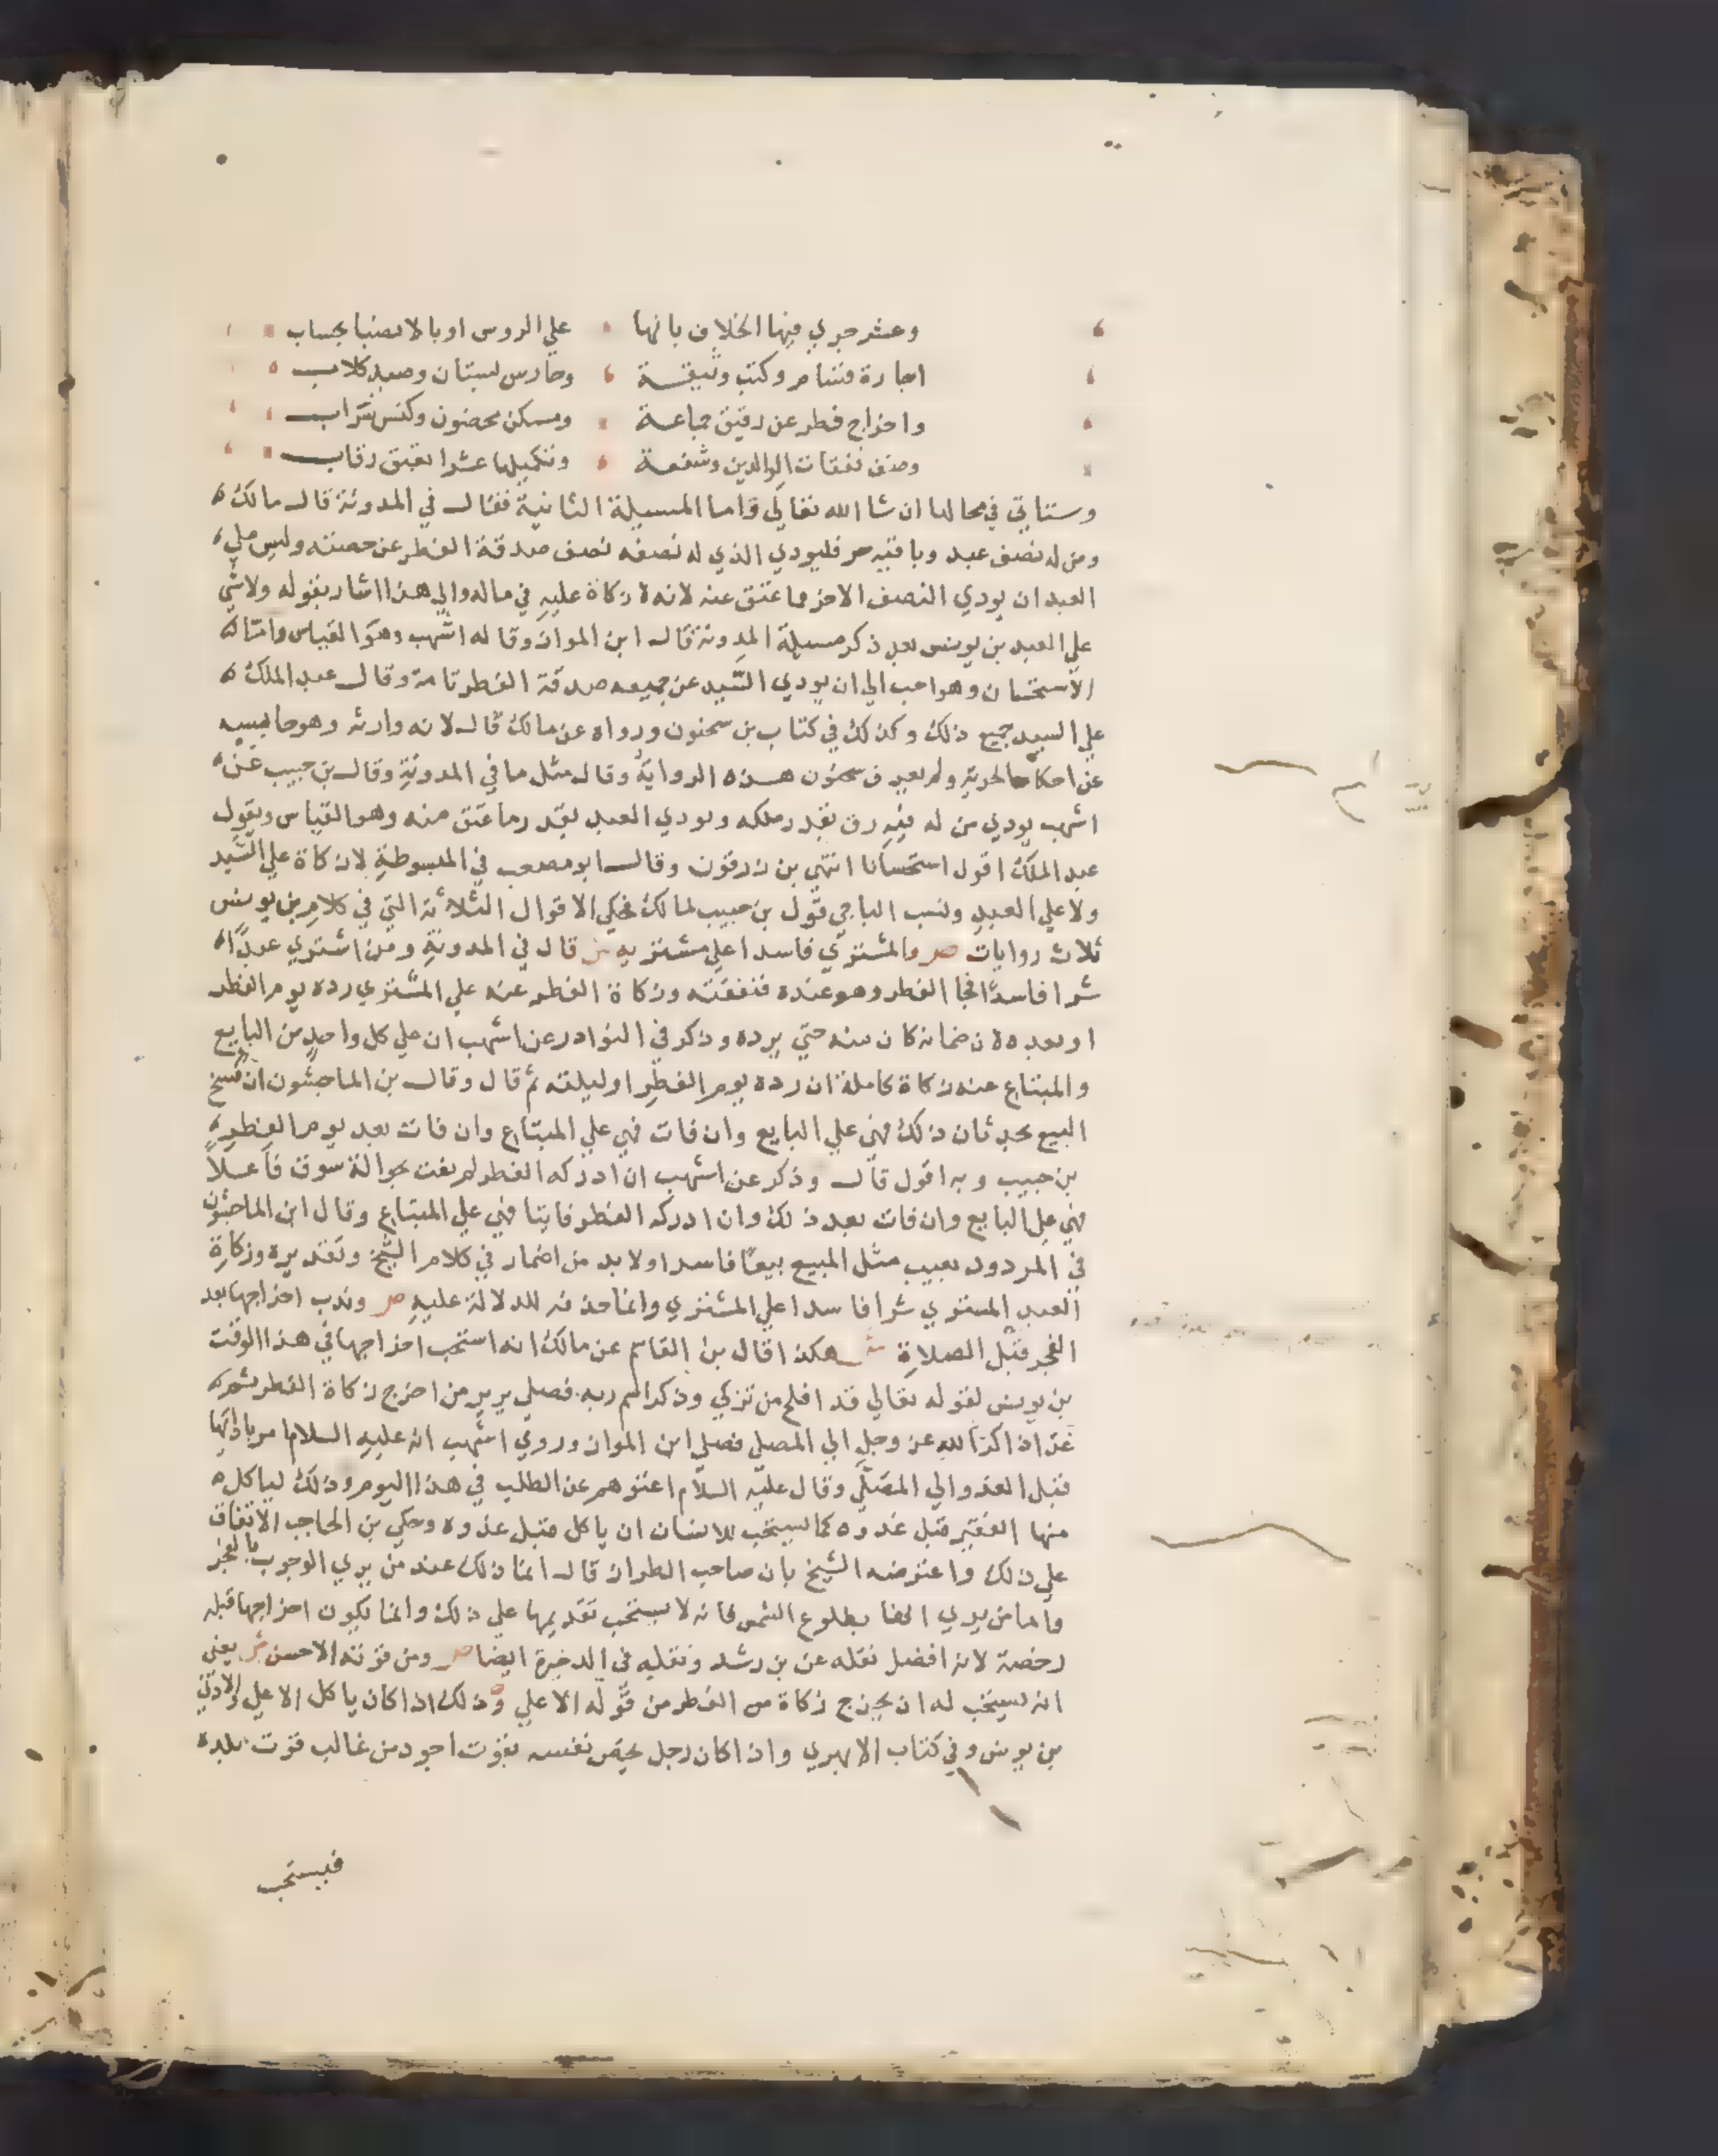 وعشر جري فيها الخلاف بانها علي الروس او بالانصبا بحساب
اجارة قسام وكتب وثيقة وحارس بستان وصيد كلاب
واخراج فطر عن رقيق جماعة ومسكن محضون وكنس تراب
وصنف نفقات الوالدين وشفعة وتكميلها عشرا بعتق رقاب
وستاتي في محالها ان شا الله تعالي واما المسيلة الثانية فقال في المدونة قال مالك
ومن له نصف عبد وباقيه حر فليودي الذي له نصفه نصف صدقة الفطر عن حصته وليس علي
العبد ان يودي النصف الاخر مما عتق عنه لانه لا زكاة عليه في ماله والي هذا اشار بقوله ولا شي
علي العبد بن يونس بعد ذكر مسيلة المدونة قال ابن المواز وقاله اشهب وهو القياس وامتا
الاستحسان وهو احب الي ان يودي السيد عن جميعه صدقة الفطر تامة وقال عبد الملك
علي السيد جميع ذلك وكذلك في كتاب بن سحنون ورواه عن مالك قال لانه وارثه وهو حابسه
عن احكام الحرية ولم يعرف سحنون هذه الرواية وقال مثل ما في المدونة وقال بن حبيب عن
اشهب يودي من له فيه رق بقدر ملكه ويودي العبد بقدر ما عتق منه وهو القياس وبقول
عبد الملك اقول استحسانا انتهي بن زرقون وقال ابو مصعب في المبسوطة لا زكاة علي السيد
ولا علي العبد ونسب الباجي قول بن حبيب لمالك فحكي الاقوال الثلاثة التي في كلام بن يونس
ثلاث روايات ص والمشتري فاسدا علي مشتريه ش قال في المدونة ومن اشتري عبدا
شرا فاسدا فجا الفطر وهو عنده فنفقته وزكاة الفطر عنه علي المشتري رده يوم الفطر
او بعده لان ضمانه كان منه حتي يرده وذكر في النوادر عن اشهب ان علي كل واحد من البايع
والمبتاع عنه زكاة كاملة ان رده يوم الفطر او ليلته ثم قال وقال بن الماجشون ان فسخ
البيع بحدثان ذلك فهي علي البايع وان فات فهي علي المبتاع وان فات بعد يوم الفطر
بن حبيب وبه اقول قال وذكر عن اشهب ان ادركه الفطر لم يفت بحوالة سوق فاعلا
فهي علي البايع وان فات بعد ذلك وان ادركه الفطر فايتا فهي علي المبتاع وقال ابن الماجشون
في المردود بعيب مثل المبيع بيعا فاسدا ولا بد من اضمار في كلام الشيخ وتقديره وزكاة
العبد المشتري شرا فاسدا علي المشتري وانما حذفه للدلالة عليه ص وندب اخراجها بعد
الفجر قبل الصلاة ش هكذا قال بن القاسم عن مالك انه استحب اخراجها في هذا الوقت
بن يونس لقوله تعالي قد افلح من تزكي وذكر اسم ربه فصلي يريد من اخرج زكاة الفطر ثم
غدا ذاكرا لله عز وجل الي المصلي فصلي ابن المواز وروي اشهب انه عليه السلام امر بادايها
قبل الغدو الي المصلي وقال عليه السلام اغنوهم عن الطلب في هذا اليوم وذلك لياكل
منها الفقير قبل غدوه كما يستحب للانسان ان ياكل قبل غدوه وحكي بن الحاجب الاتفاق
علي ذلك واعترضه الشيخ بان صاحب الطراز قال انما ذلك عند من يري الوجوب بالفجر
واما من يري انها بطلوع الشمس فانه لا يستحب تقديمها علي ذلك وانما يكون اخراجها قبله
رخصة لانه افضل نقله عن بن رشد ونقله في الدخيرة ايضا ص ومن قوته الاحسن ش يعني
انه يستحب له ان يخرج زكاة من الفطر من قوله الاعلي وذلك اذا كان ياكل الاعلي والادني
بن يونس وفي كتاب الابهري واذا كان رجل يخص نفسه بقوت اجود من غالب قوت بلده
فيستحب